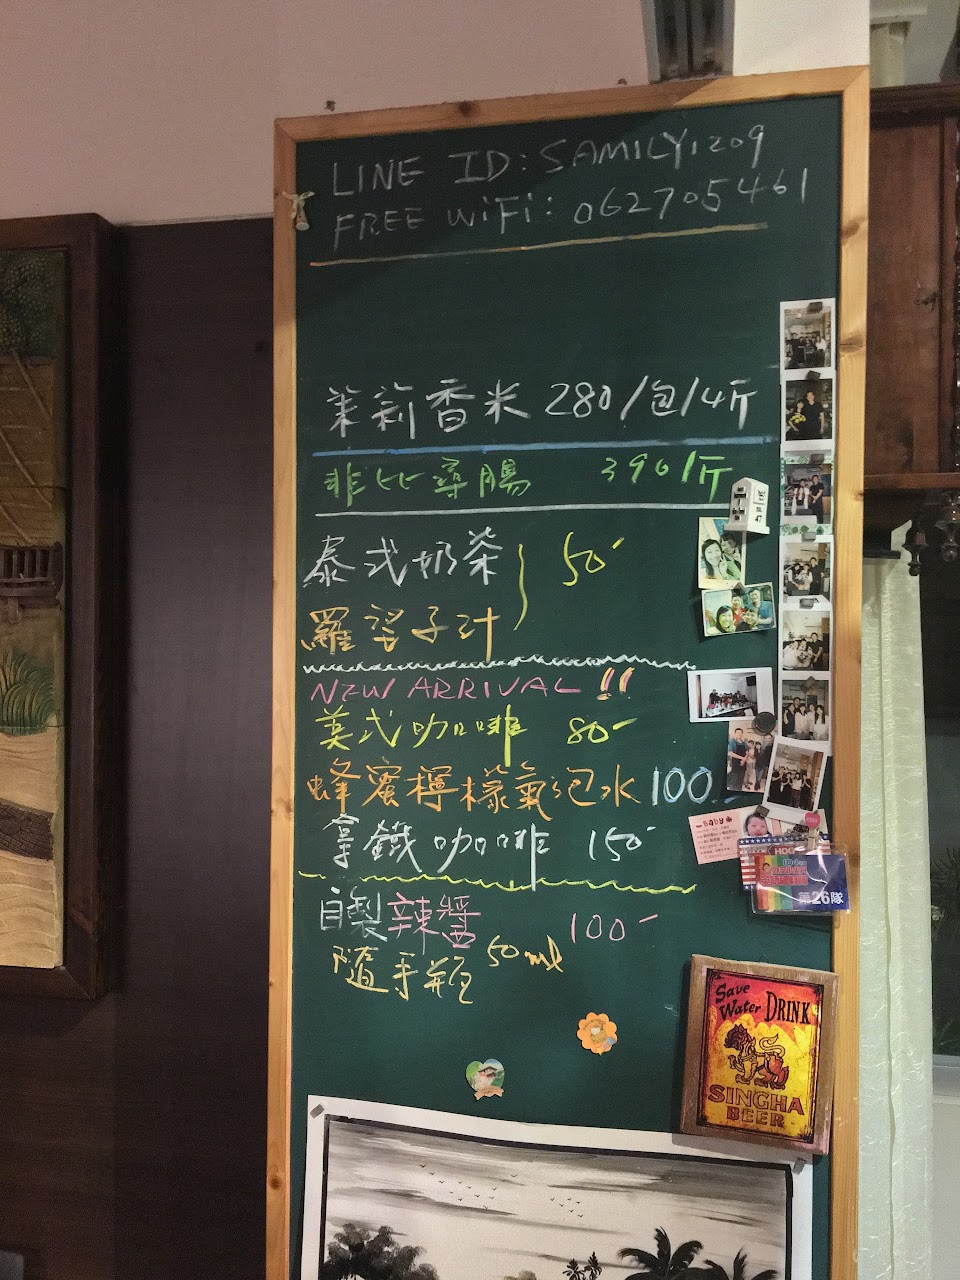 LINE ID: SAMILY1209
FREE WiFi: 062705461
茉莉香米 280/包/4斤
非比尋腸 390/斤
泰式奶茶 50
羅望子汁
NEW ARRIVAL !!
美式咖啡 80
蜂蜜檸檬氣泡水 100
拿鐵咖啡 150
自製辣醬 100
隨手瓶 50ml
Baby
第26隊
Save Water DRINK
SINGHA
BEER